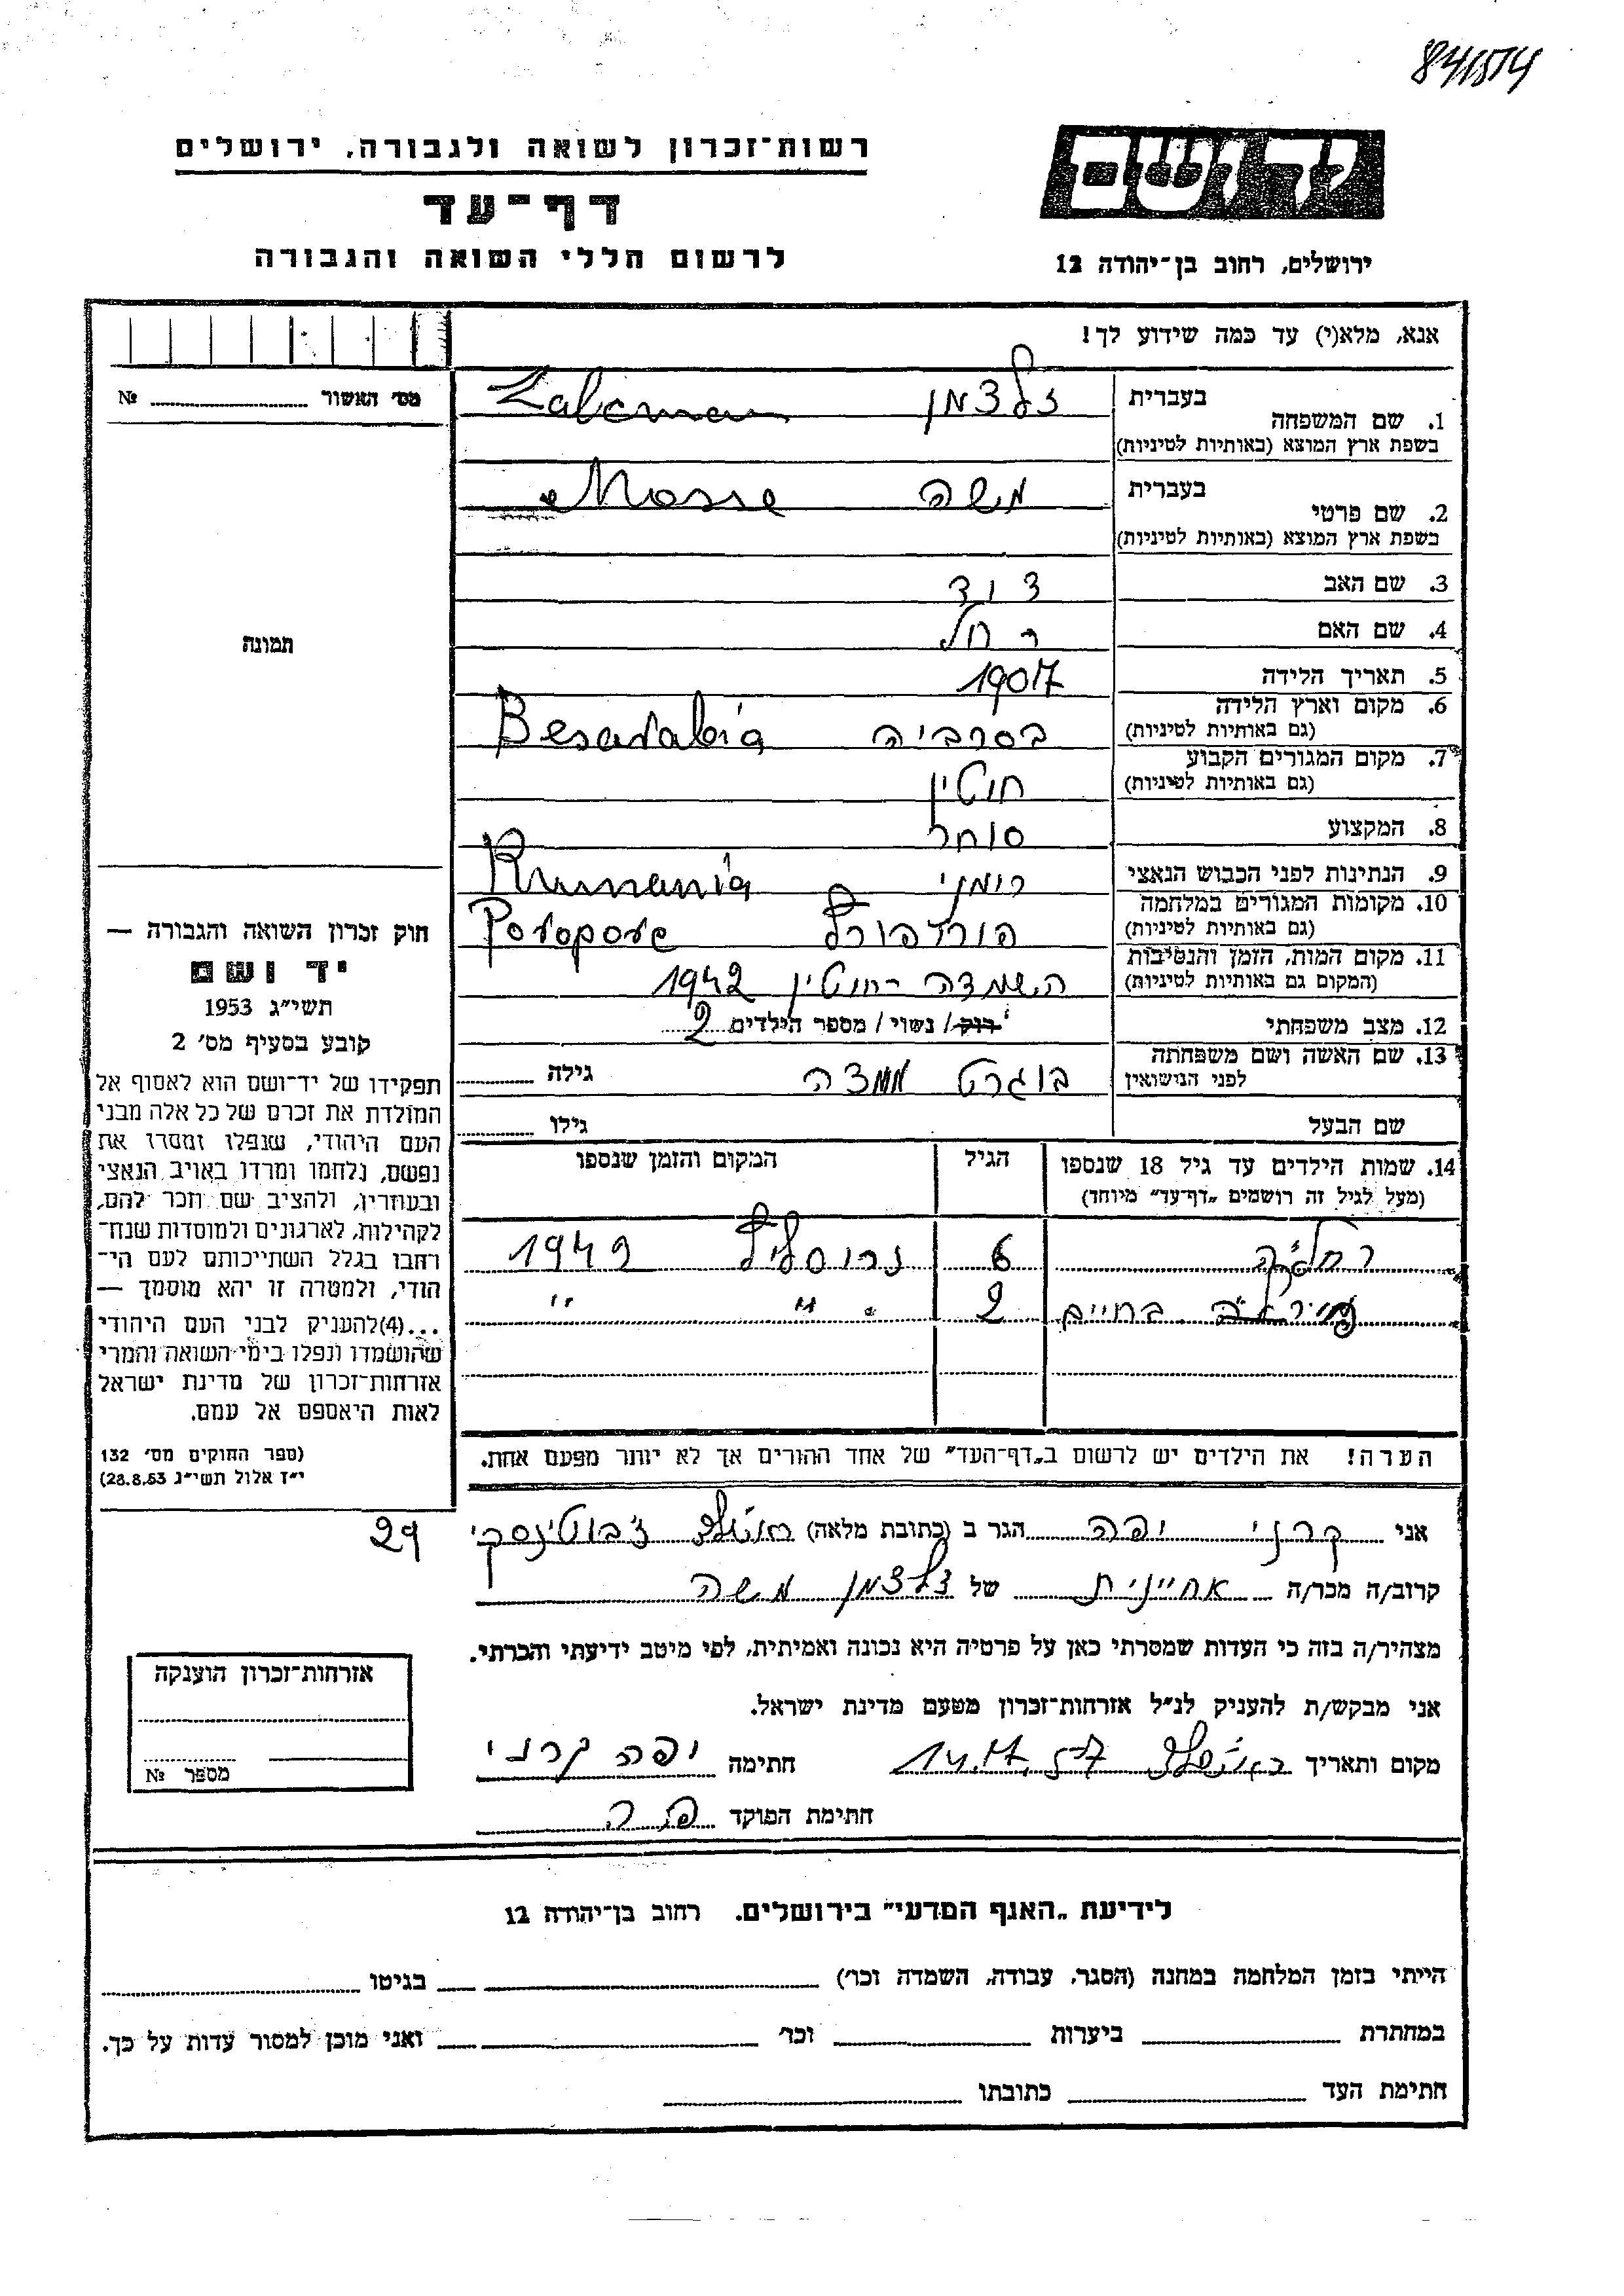 רשות־זכרון לשואה ולגבורה, ירושלים
דף־עד
לרשום חללי השואה והגבורה
ידושם
ירושלים, רחוב בן־יהודה 12
אנא, מלא(י) עד כמה שידוע לך!
מס׳ האשור № 
1. שם המשפחה בעברית זלצמן
בשפת ארץ המוצא (באותיות לטיניות) Zalcman
2. שם פרטי בעברית משה
בשפת ארץ המוצא (באותיות לטיניות) Mosse
3. שם האב דוד
4. שם האם רחל
5. תאריך הלידה 1907
6. מקום וארץ הלידה (גם באותיות לטיניות) בסרביה Besarabia
7. מקום המגורים הקבוע (גם באותיות לטיניות) חוטין
8. המקצוע סוחר
9. הנתינות לפני הכבוש הנאצי רומני Rumania
10. מקומות המגורים במלחמה (גם באותיות לטיניות)
11. מקום המות, הזמן והנסיבות (המקום גם באותיות לטיניות) השמדה חוטין 1942
12. מצב משפחתי רוק / נשוי / מספר הילדים 2
13. שם האשה ושם משפחתה לפני הנישואין גילה
שם הבעל גילו
14. שמות הילדים עד גיל 18 שנספו הגיל המקום והזמן שנספו
(מעל לגיל זה רושמים „דף־עד״ מיוחד)
6 1942
2 " "
הערה! את הילדים יש לרשום ב„דף־העד״ של אחד ההורים אך לא יותר מפעם אחת.
תמונה
חוק זכרון השואה והגבורה —
יד ושם
תשי״ג 1953
קובע בסעיף מס׳ 2
תפקידו של יד־ושם הוא לאסוף אל
המולדת את זכרם של כל אלה מבני
העם היהודי, שנפלו ומסרו את
נפשם, נלחמו ומרדו באויב הנאצי
ובעוזריו, ולהציב שם וזכר להם,
לקהילות, לארגונים ולמוסדות שנח־
רבו בגלל השתייכותם לעם הי־
הודי, ולמטרה זו יהא מוסמך —
...(4) להעניק לבני העם היהודי
שהושמדו ונפלו בימי השואה והמרי
אזרחות־זכרון של מדינת ישראל
לאות היאספם אל עמם.
(ספר החוקים מס׳ 132
י״ז אלול תשי״ג 28.8.53)
אני קרני יפה הגר ב (כתובת מלאה) ז׳בוטינסקי 29
קרוב/ה מכר/ה אחיינית של זלצמן משה
מצהיר/ה בזה כי העדות שמסרתי כאן על פרטיה היא נכונה ואמיתית, לפי מיטב ידיעתי והכרתי.
אני מבקש/ת להעניק לנ״ל אזרחות־זכרון מטעם מדינת ישראל.
מקום ותאריך חתימה יפה קרני
חתימת הפוקד
אזרחות־זכרון הוענקה
מספר №
לידיעת „האגף המדעי״ בירושלים. רחוב בן־יהודה 12
הייתי בזמן המלחמה במחנה (הסגר, עבודה, השמדה וכו׳) בגיטו
במחתרת ביערות וכו׳ ואני מוכן למסור עדות על כך.
חתימת העד כתובתו